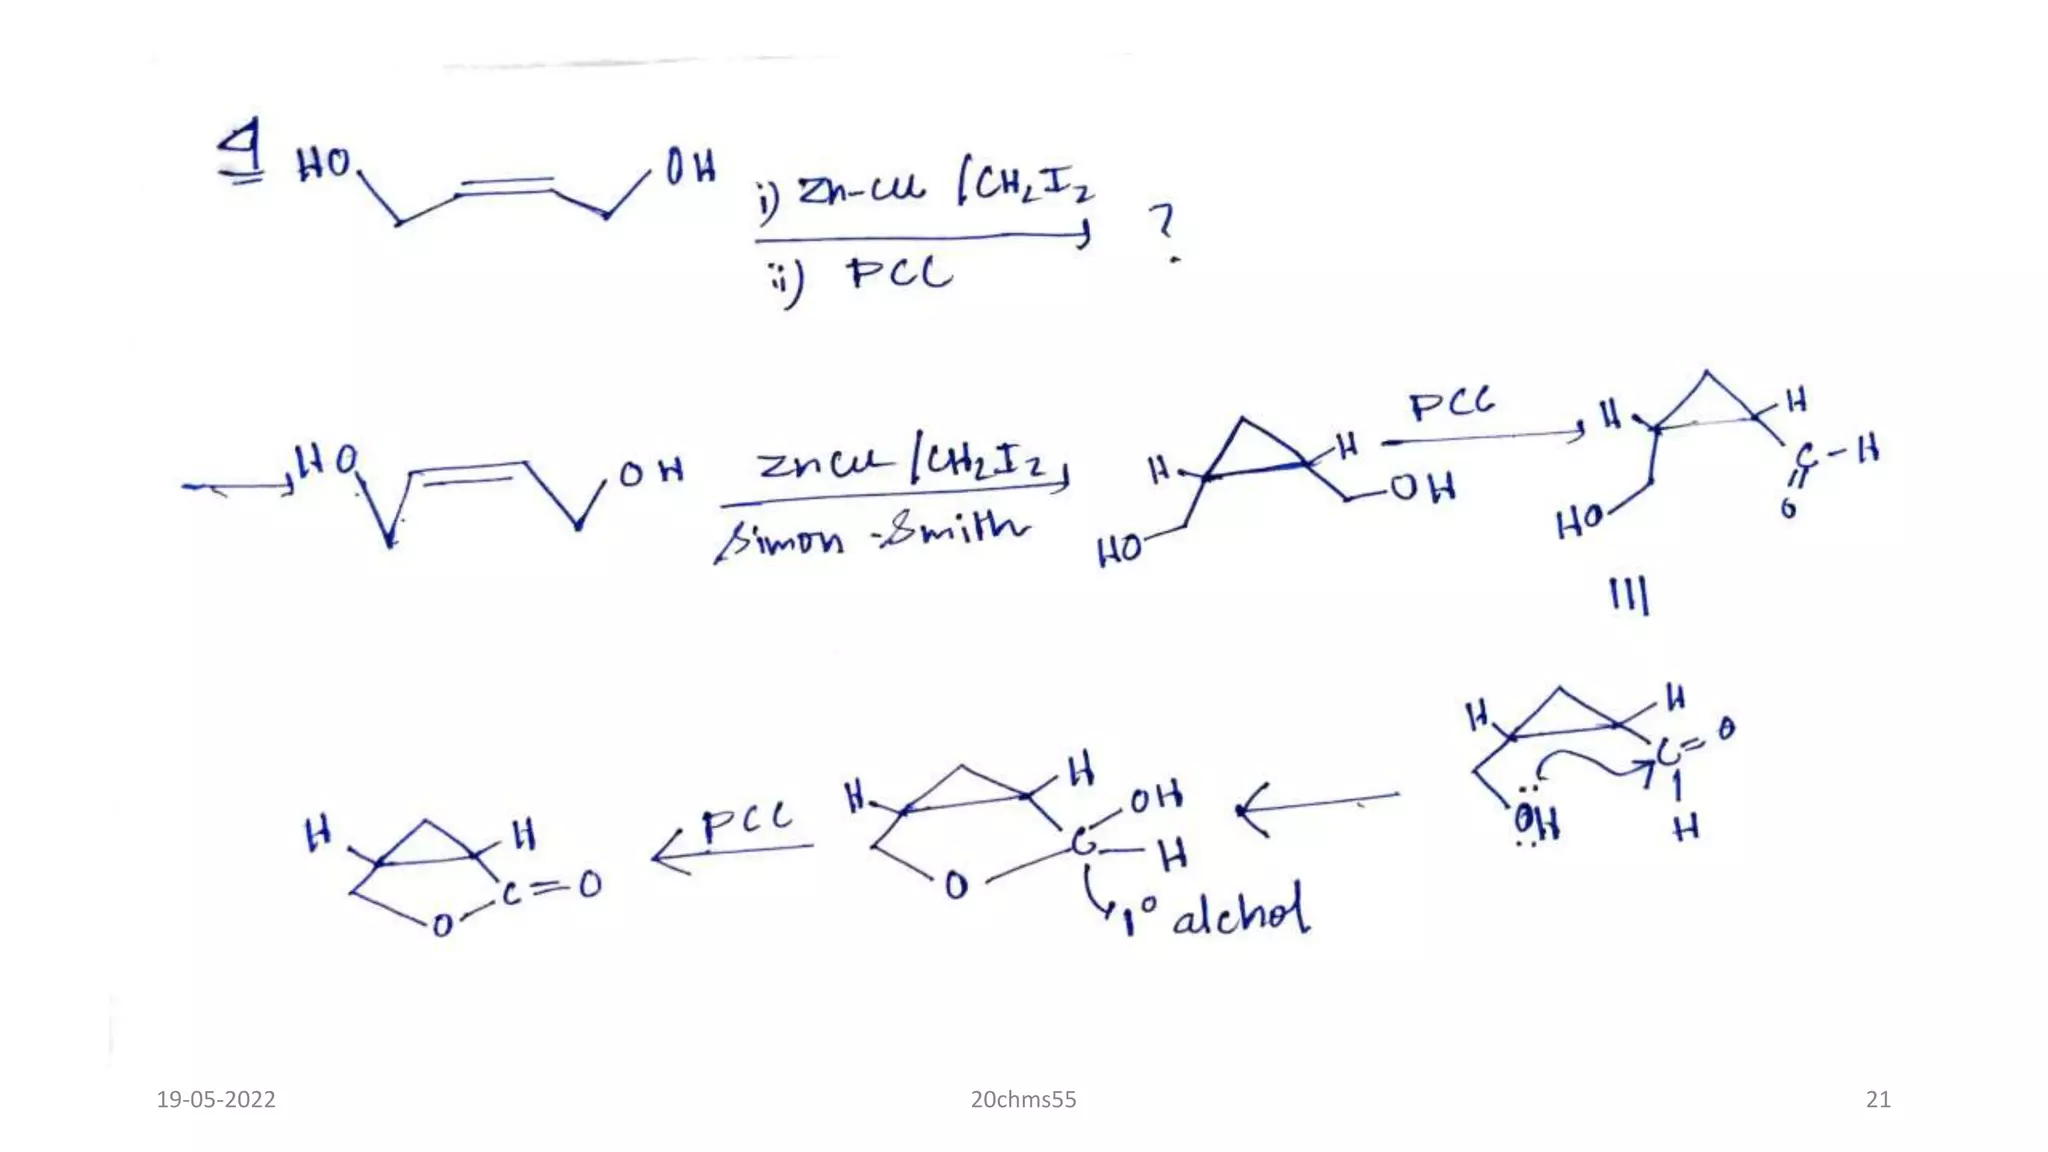 4 HO OH i) Zn-Cu /CH2I2
ii) PCC ?
HO OH ZnCu /CH2I2 H H OH HO PCC H H C-H O HO
Simon-Smith
|||
H H C=O H ÖH
H H OH C-H O
1° alchol
PCC
H H C=O O
19-05-2022 20chms55 21